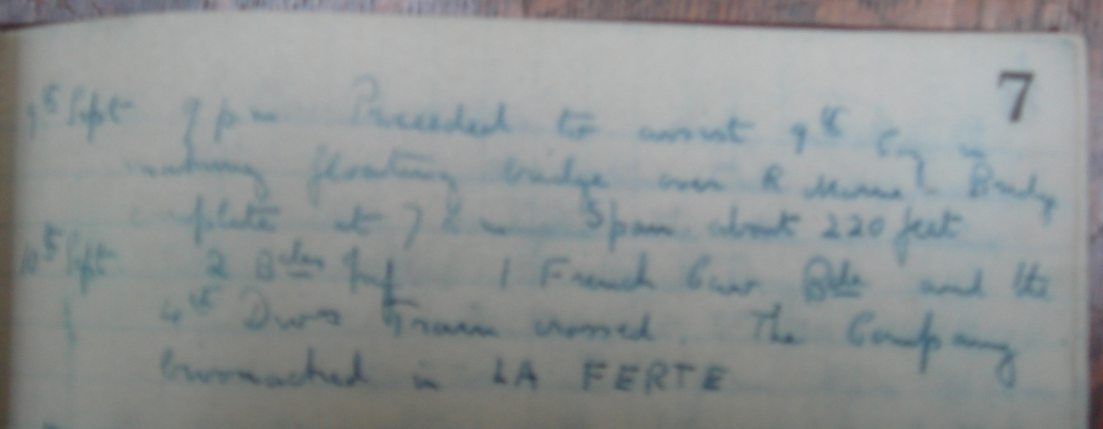 7
9th Sept 9 pm Proceeded to assist 9th Coy in
making floating bridge over R Marne. Bridge
at 7 Span about 220 feet
10th Sept 2 Bdes Inf 1 French Cav Bde and the
4th Divns Train crossed. The Company
bivouacked in LA FERTE